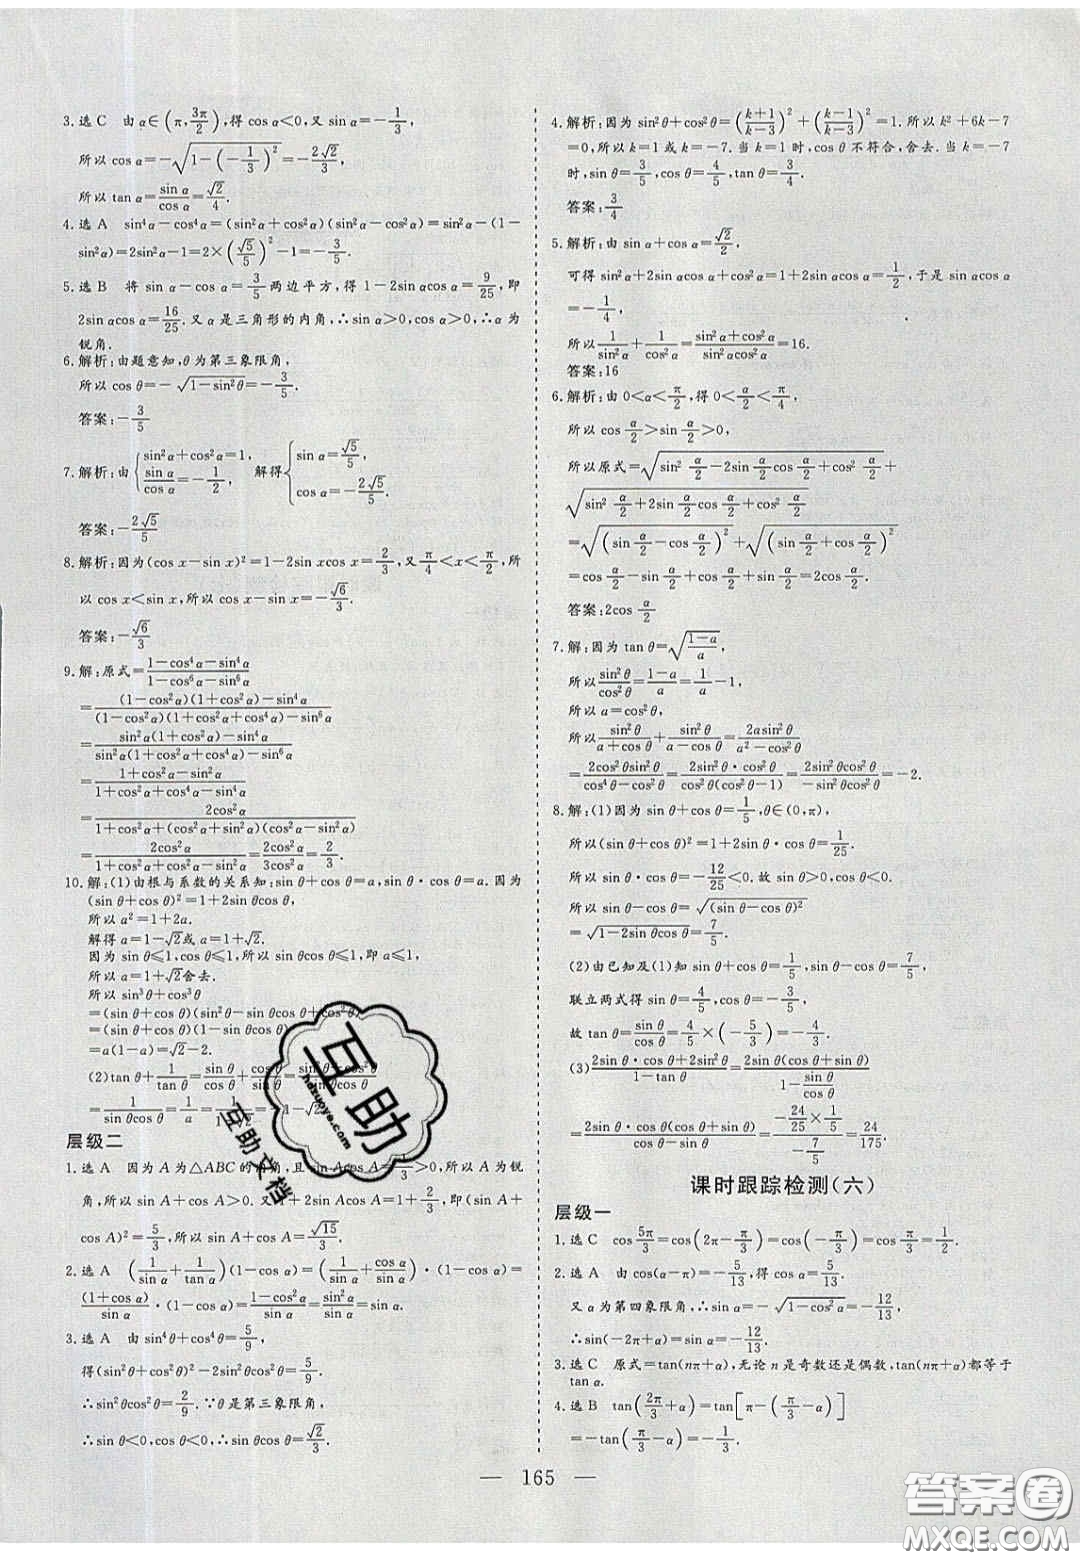 3.选C 由α∈(π,3π/2),得cos α<0,又sin α=-1/3,
所以cos α=-√(1-(-1/3)²)=-2√2/3,
所以tan α=sin α/cos α=√2/4.
4.选A sin⁴α-cos⁴α=(sin²α+cos²α)(sin²α-cos²α)=sin²α-(1-
sin²α)=2sin²α-1=2×(√5/5)²-1=-3/5.
5.选B 将sin α-cos α=3/5两边平方,得1-2sin αcos α=9/25,即
2sin αcos α=16/25.又α是三角形的内角,∴sin α>0,cos α>0,∴α为
锐角.
6.解析:由题意知,θ为第三象限角,
所以cos θ=-√(1-sin²θ)=-3/5.
答案:-3/5
7.解析:由{sin²α+cos²α=1, sin α/cos α=-1/2, 解得{sin α=√5/5, cos α=-2√5/5.
答案:-2√5/5
8.解析:因为(cos x-sin x)²=1-2sin xcos x=2/3,又π/4<x<π/2,所
以cos x<sin x,所以cos x-sin x=-√6/3.
答案:-√6/3
9.解:原式=(1-cos⁴α-sin⁴α)/(1-cos⁶α-sin⁶α)
=((1-cos²α)(1+cos²α)-sin⁴α)/((1-cos²α)(1+cos²α+cos⁴α)-sin⁶α)
=(sin²α(1+cos²α)-sin⁴α)/(sin²α(1+cos²α+cos⁴α)-sin⁶α)
=(1+cos²α-sin²α)/(1+cos²α+cos⁴α-sin⁴α)
=2cos²α/(1+cos²α+(cos²α+sin²α)(cos²α-sin²α))
=2cos²α/(1+cos²α+cos²α-sin²α)=2cos²α/3cos²α=2/3.
10.解:(1)由根与系数的关系知:sin θ+cos θ=a,sin θ·cos θ=a.因为
(sin θ+cos θ)²=1+2sin θcos θ,
所以a²=1+2a.
解得a=1-√2或a=1+√2.
因为sin θ≤1,cos θ≤1,所以sin θcos θ≤1,
所以a=1+√2舍去.
所以sin³θ+cos³θ
=(sin θ+cos θ)(sin²θ-sin θcos θ+cos²θ)
=(sin θ+cos θ)(1-sin θcos θ)
=a(1-a)=√2-2.
(2)tan θ+1/tan θ=sin θ/cos θ+cos θ/sin θ
=1/(sin θcos θ)=1/a=
层级二
1.选A 因为A为△ABC的内角,且sin Acos A=1/3>0,所以A为锐
角,所以sin A+cos A>0.又1+2sin Acos A=1+2/3,即(sin A+
cos A)²=5/3,所以sin A+cos A=√15/3.
2.选A (1/sin α+1/tan α)(1-cos α)=(1/sin α+cos α/sin α)·(1-cos α)=
(1+cos α)/sin α·(1-cos α)=(1-cos²α)/sin α=sin²α/sin α=sin α.
3.选A 由sin⁴θ+cos⁴θ=5/9,
得(sin²θ+cos²θ)²-2sin²θcos²θ=5/9
∴sin²θcos²θ=2/9.∵θ是第三象限角,
∴sin θ<0,cos θ<0,∴sin θcos θ=√2/3.
4.解析:因为sin²θ+cos²θ=((k+1)/(k-3))²+((k-1)/(k-3))²=1.所以k²+6k-7
=0,所以k=1或k=-7.当k=1时,cos θ不符合,舍去.当k=-7
时,sin θ=3/5,cos θ=4/5,tan θ=3/4.
答案:3/4
5.解析:由sin α+cos α=√2/2,
可得sin²α+2sin αcos α+cos²α=1+2sin αcos α=1/2,于是sin αcos α
=-1/4,
所以1/sin²α+1/cos²α=(sin²α+cos²α)/(sin²αcos²α)=16.
答案:16
6.解析:由0<α<π/2,得0<α/2<π/4,
所以cos α/2>sin α/2>0,
所以原式=√(sin²α/2-2sin α/2cos α/2+cos²α/2)+
√(sin²α/2+2sin α/2cos α/2+cos²α/2)
=√((sin α/2-cos α/2)²)+√((sin α/2+cos α/2)²)
=cos α/2-sin α/2+cos α/2+sin α/2=2cos α/2.
答案:2cos α/2
7.解:因为tan θ=√((1-a)/a),
所以sin²θ/cos²θ=(1-a)/a=1/a-1,
所以a=cos²θ,
所以sin²θ/(a+cos θ)+sin²θ/(a-cos θ)=2asin²θ/(a²-cos²θ)
=2cos²θsin²θ/(cos⁴θ-cos²θ)=2sin²θ·cos²θ/(cos²θ(cos²θ-1))=2sin²θcos²θ/(-sin²θcos²θ)=-2.
8.解:(1)因为sin θ+cos θ=1/5,θ∈(0,π),
所以(sin θ+cos θ)²=1+2sin θcos θ=1/25.
所以sin θ·cos θ=-12/25<0.故sin θ>0,cos θ<0.
所以sin θ-cos θ=√((sin θ-cos θ)²)
=√(1-2sin θcos θ)=7/5.
(2)由已知及(1)知sin θ+cos θ=1/5,sin θ-cos θ=7/5,
联立两式得sin θ=4/5,cos θ=-3/5,
故tan θ=sin θ/cos θ=4/5×(-5/3)=-4/3.
(3)(2sin θ·cos θ+2sin²θ)/(1-tan θ)=2sin θ(cos θ+sin θ)/(1-sin θ/cos θ)
=2sin θ·cos θ(cos θ+sin θ)/(cos θ-sin θ)=(-24/25×1/5)/(-7/5)=24/175.
课时跟踪检测(六)
层级一
1.选C cos 5π/3=cos(2π-π/3)=cos(-π/3)=cos π/3=1/2.
2.选A 由cos(α-π)=-5/13,得cos α=5/13.
又α为第四象限角,∴sin α=-√(1-cos²α)=-12/13,
∴sin(-2π+α)=sin α=-12/13.
3.选C 原式=tan(nπ+α),无论n是奇数还是偶数,tan(nπ+α)都等于
tan α.
4.选B tan(2π/3+α)=tan[π-(π/3-α)]
=-tan(π/3-α)=-1/3.
— 165 —
互助
hdzuoye.com
互助文档
答案圈
MXQE.COM